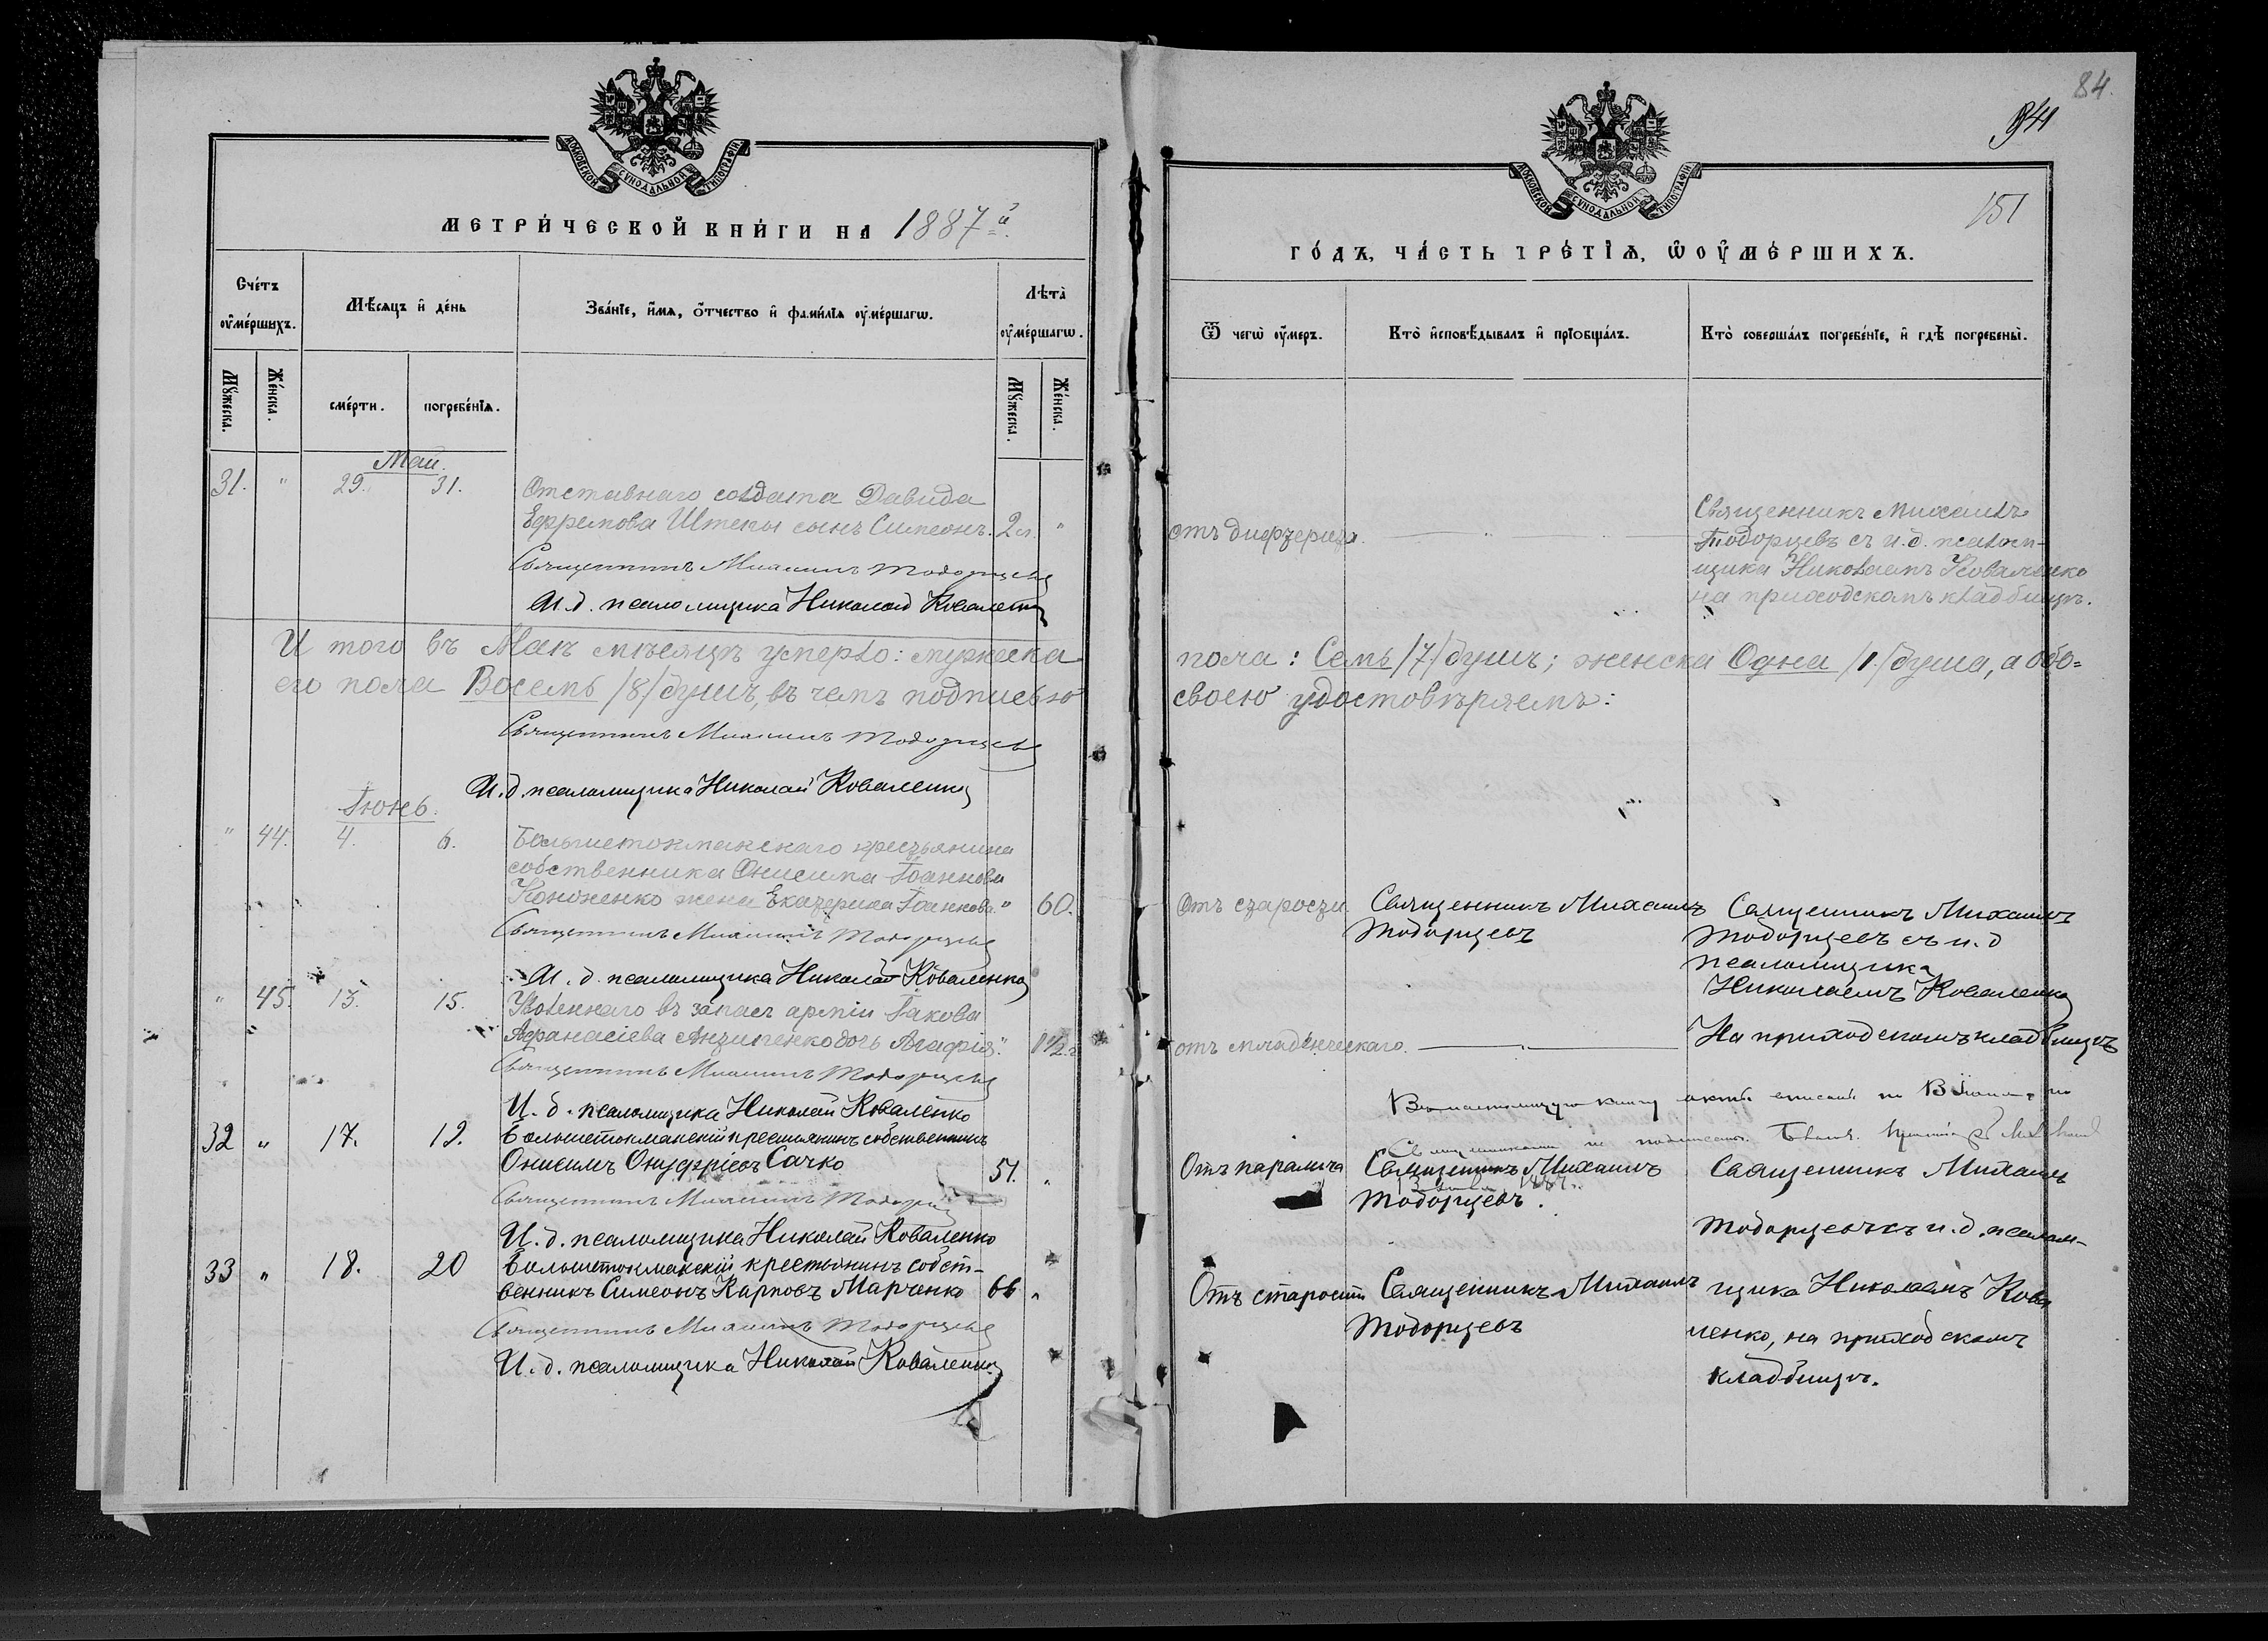 МОСКОВСКОЙ СУНОДАЛЬНОЙ ТИПОГРАФІИ
МЕТРИ́ЧЕСКОЙ КНИ́ГИ НА 1887й.
Сче́тъ ᲂу҆ме́ршихъ.
Мѣ́сяцъ и҆ де́нь
Зва́нїе, и҆́мѧ, ѻ҆́тчество и҆ фами́лїѧ ᲂу҆ме́ршагѡ.
Лѣта̀ ᲂу҆ме́ршагѡ.
Мꙋ́жеска.
Же́нска.
сме́рти.
погребе́нїѧ.
Мꙋ́жеска.
Же́нска.
Май.
31. " 29. 31. Отставнаго солдата Давида
Ефремова Штепы сынъ Симеонъ. 2 л. "
Священникъ Михаилъ Тодорцевъ
И. д. псаломщика Николай Коваленко
И того въ Маѣ мѣсяцѣ умерло: мужеска
его пола Восемь /8/ душъ, въ чемъ подписью
Священникъ Михаилъ Тодорцевъ
И. д. псаломщика Николай Коваленко
Іюнь.
" 44. 4. 6. Большетокмакскаго крестьянина
собственника Онисима Іоаннова
Кононенко жена Екатерина Іоаннова. " 60.
Священникъ Михаилъ Тодорцевъ
И. д. псаломщика Николай Коваленко
" 45. 13. 15. Уволеннаго въ запасъ арміи Іакова
Афанасіева Антипенко дочь Агафія. " 1 1/2 г.
Священникъ Михаилъ Тодорцевъ
И. д. псаломщика Николай Коваленко
32 " 17. 19. Большетокмакскій крестьянинъ собственникъ
Онисимъ Онуфріевъ Сачко 51. "
Священникъ Михаилъ Тодорцевъ
И. д. псаломщика Николай Коваленко
33 " 18. 20 Большетокмакскій крестьянинъ собст-
венникъ Симеонъ Карповъ Марченко 66 "
Священникъ Михаилъ Тодорцевъ
И. д. псаломщика Николай Коваленко
84.
151
МОСКОВСКОЙ СУНОДАЛЬНОЙ ТИПОГРАФІИ
ГО́ДЪ, ЧА́СТЬ ТРЕ́ТЇѦ, Ѡ҆ ОУ҆МЕ́РШИХЪ.
Ѿ чегѡ̀ ᲂу҆́меръ.
Кто̀ и҆сповѣ́дывалъ и҆ прїѡбща́лъ.
Кто̀ соверша́лъ погребе́нїе, и҆ гдѣ̀ погребены̀.
отъ дифтерита.
Священникъ Михаилъ
Тодорцевъ съ и. д. псалом-
щика Николаемъ Коваленко
на приходскомъ кладбищѣ.
пола: Семь /7/ душъ; женска Одна /1/ душа, а обо-
своею удостовѣряемъ:
Отъ старости. Священникъ Михаилъ
Тодорцевъ
Священникъ Михаилъ
Тодорцевъ съ и. д
псаломщика
Николаемъ Коваленко
На приходскомъ кладбищѣ
отъ младенческаго.
Въ настоящую книгу акты
Отъ паралича Священникъ Михаилъ
Тодорцевъ.
Священникъ Михаилъ
Тодорцевъ съ и. д. псалом-
Отъ старости Священникъ Михаилъ
Тодорцевъ
щика Николаемъ Кова
ленко, на приходскомъ
кладбищѣ.